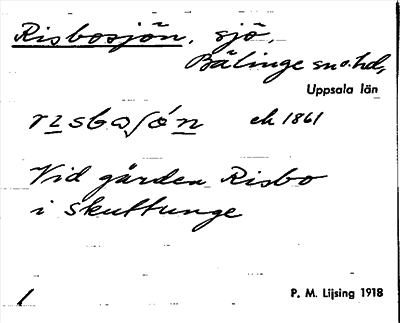 Risbosjön, sjö,
Bälinge sn o. hd,
Uppsala län
risbosjön ek 1861
Vid gården Risbo
i Skuttunge
1
P. M. Lijsing 1918